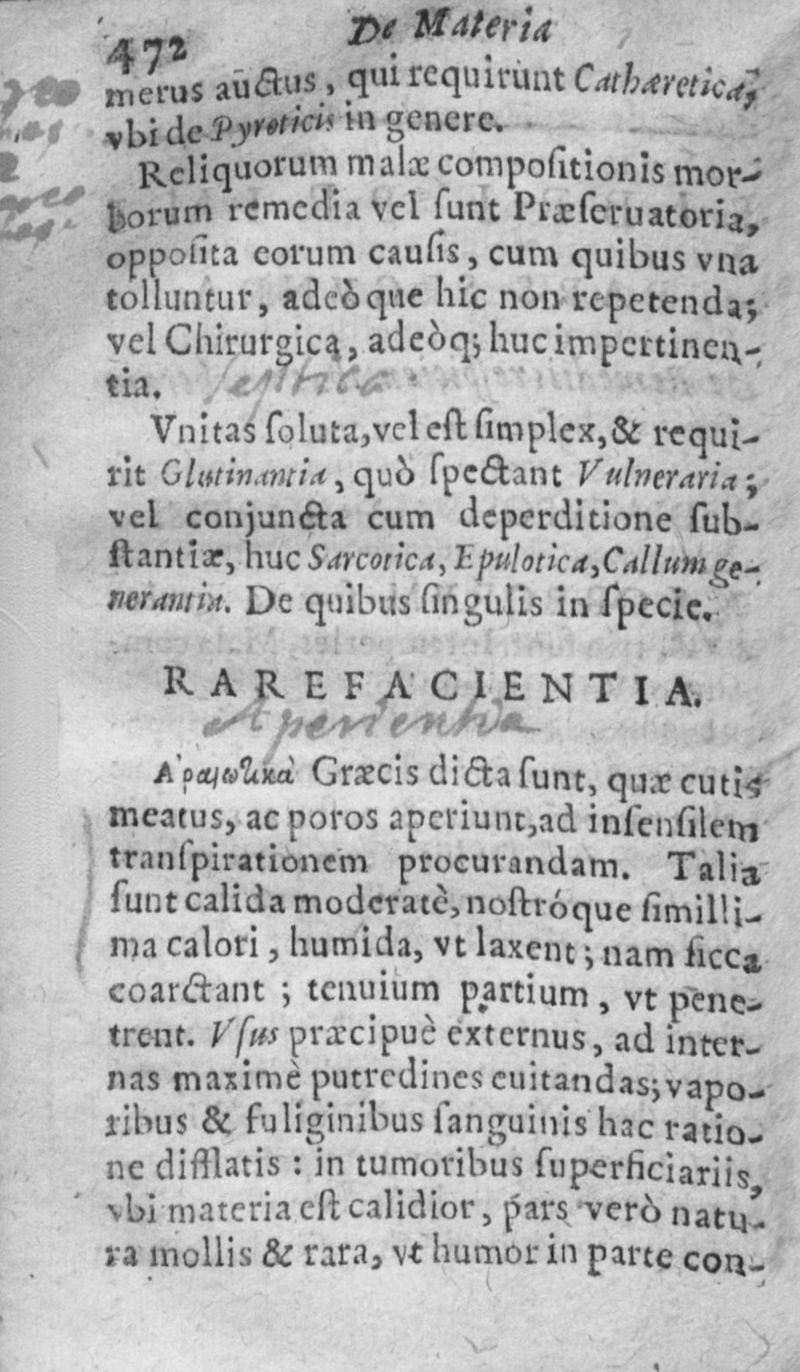 472 De Materia
merus auctus, qui requirunt Cathæretica,
vbi de Pyroticis in genere.
Reliquorum malæ compoſitionis mor-
borum remedia vel ſunt Præſeruatoria,
oppoſita eorum cauſis, cum quibus vna
tolluntur, adeòque hic non repetenda;
vel Chirurgica, adeòq; huc impertinen-
tia.
Septica
Vnitas ſoluta, vel eſt ſimplex, & requi-
rit Glutinantia, quò ſpectant Vulneraria;
vel conjuncta cum deperditione ſub-
ſtantiæ, huc Sarcotica, Epulotica, Callum ge-
nerantia. De quibus ſingulis in ſpecie.
RAREFACIENTIA.
Aperientia
Græcis dicta ſunt, quæ cutis
meatus, ac poros aperiunt, ad inſenſilem
tranſpirationem procurandam. Talia
ſunt calida moderatè, noſtróque ſimilli-
ma calori, humida, vt laxent; nam ſicca
coarctant; tenuium partium, vt pene-
trent. Vſus præcipuè externus, ad inter-
nas maximè putredines euitandas; vapo-
ribus & fuliginibus ſanguinis hac ratio-
ne difflatis: in tumoribus ſuperficiariis,
vbi materia eſt calidior, pars verò natu-
ra mollis & rara, vt humor in parte con-